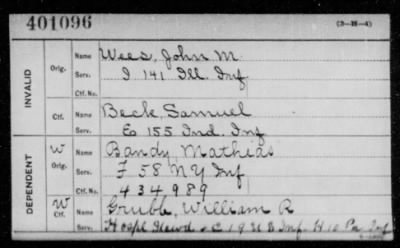 401096
(3—H—4)
INVALID
Orig.
Name Wees, John M.
Serv. I 141 Ill. Inf
Ctf. No.
Ctf.
Name Beck, Samuel
Serv. Co 155 Ind. Inf
DEPENDENT
W Orig.
Name Bandy, Mathias
Serv. F 58 NY Inf
Ctf. No. 434989
W Ctf.
Name Grubb, William R
Serv. Hospl Stewd C 19 U S Inf. H 10 Pa. Inf